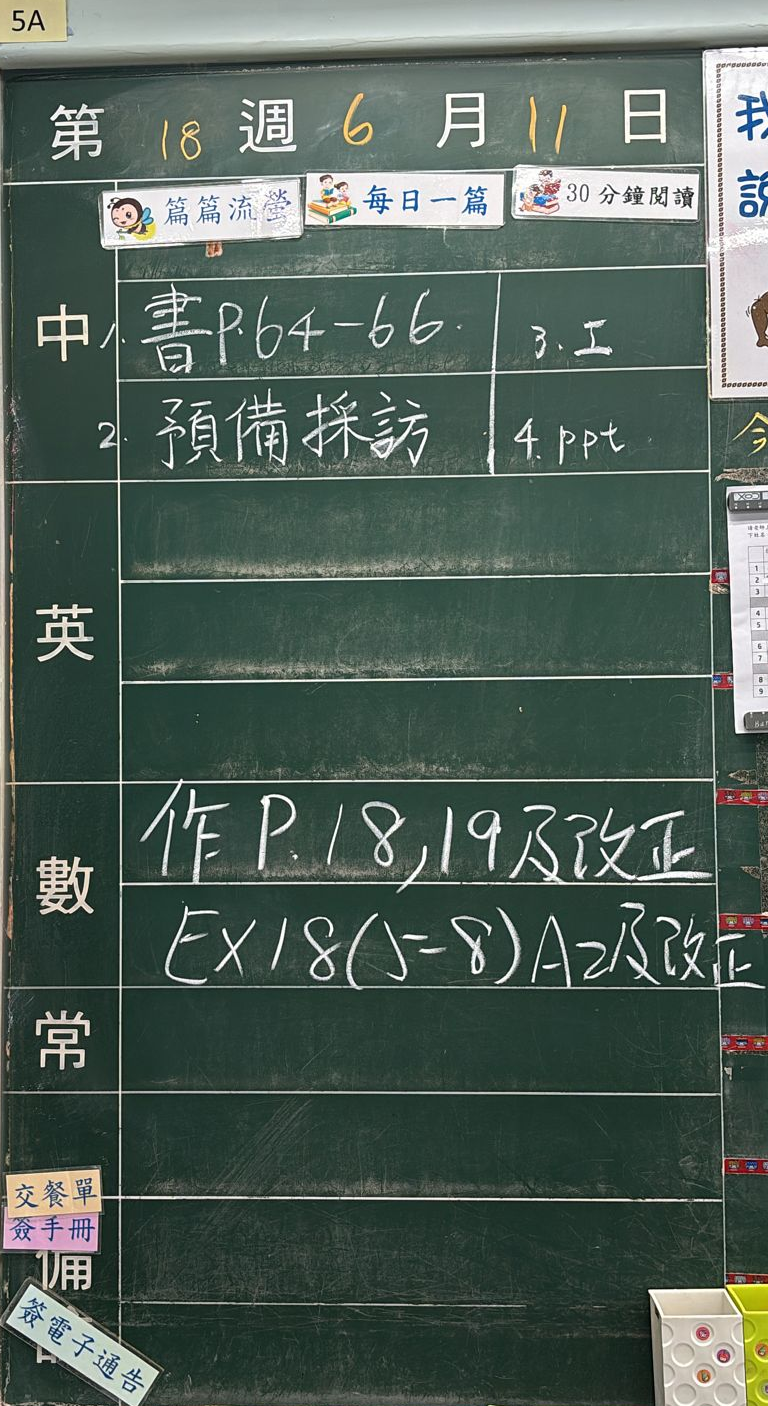 5A
第 18 週 6 月 11 日
篇篇流螢 每日一篇 30分鐘閱讀
中
1. 書P.64-66. 3. 工
2. 預備採訪 4. ppt
英
數
作 P. 18,19及改正
EX18(5-8) A2及改正
常
交餐單
簽手冊
備
簽電子通告
我
說
今
1
2
3
4
5
6
7
8
9